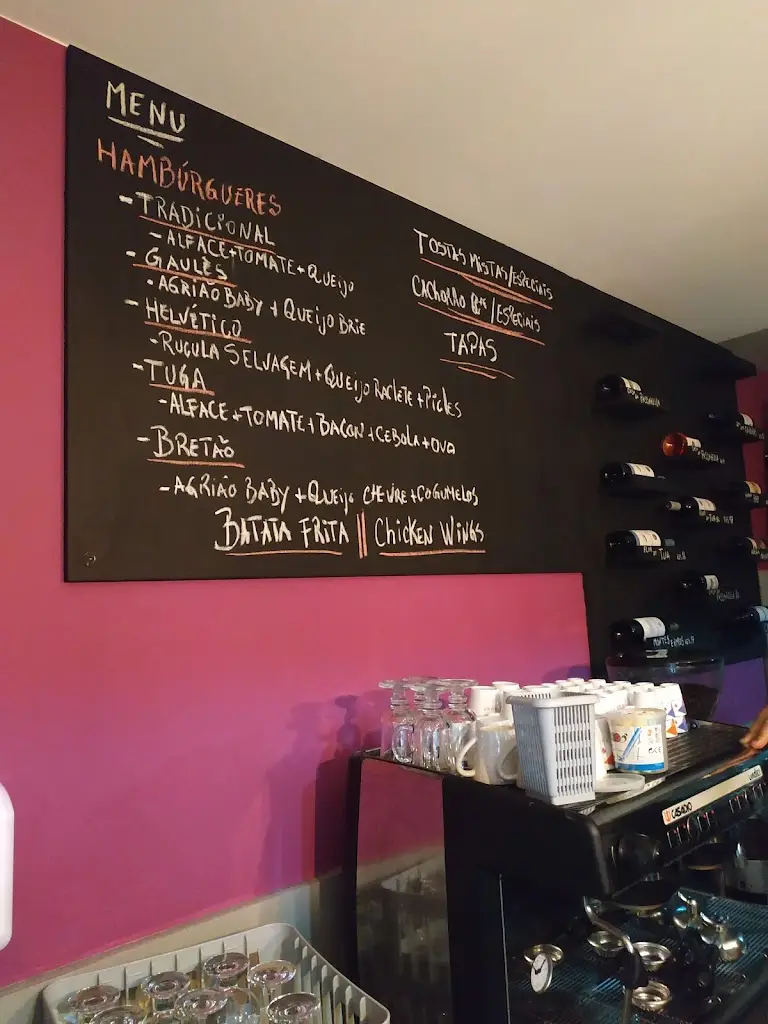 MENU
HAMBÚRGUERES
- TRADICIONAL
- ALFACE + TOMATE + QUEIJO
- GAULÊS
• AGRIÃO BABY + QUEIJO BRIE
- HELVÉTICO
- RUCULA SELVAGEM + QUEIJO RACLETE + PICLES
- TUGA
- ALFACE + TOMATE + BACON + CEBOLA + OVO
- BRETÃO
- AGRIÃO BABY + QUEIJO CHEVRE + COGUMELOS
BATATA FRITA || CHICKEN WINGS
TOSTAS MISTAS/ESPECIAIS
CACHORRO QTE/ESPECIAIS
TAPAS
CASADIO